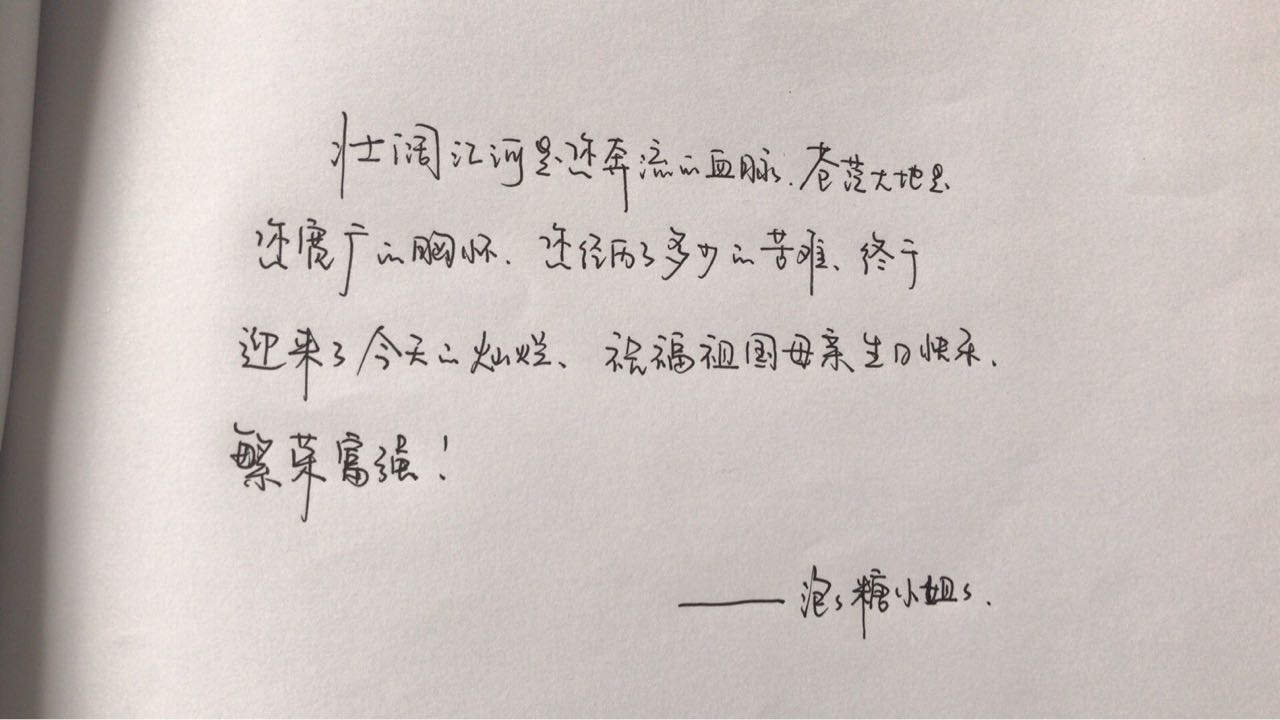 壮阔江河是您奔流的血脉、苍茫大地是
您宽广的胸怀、您经历了多少的苦难、终于
迎来了今天的灿烂、祝福祖国母亲生日快乐、
繁荣富强！
——泡泡糖小姐姐.